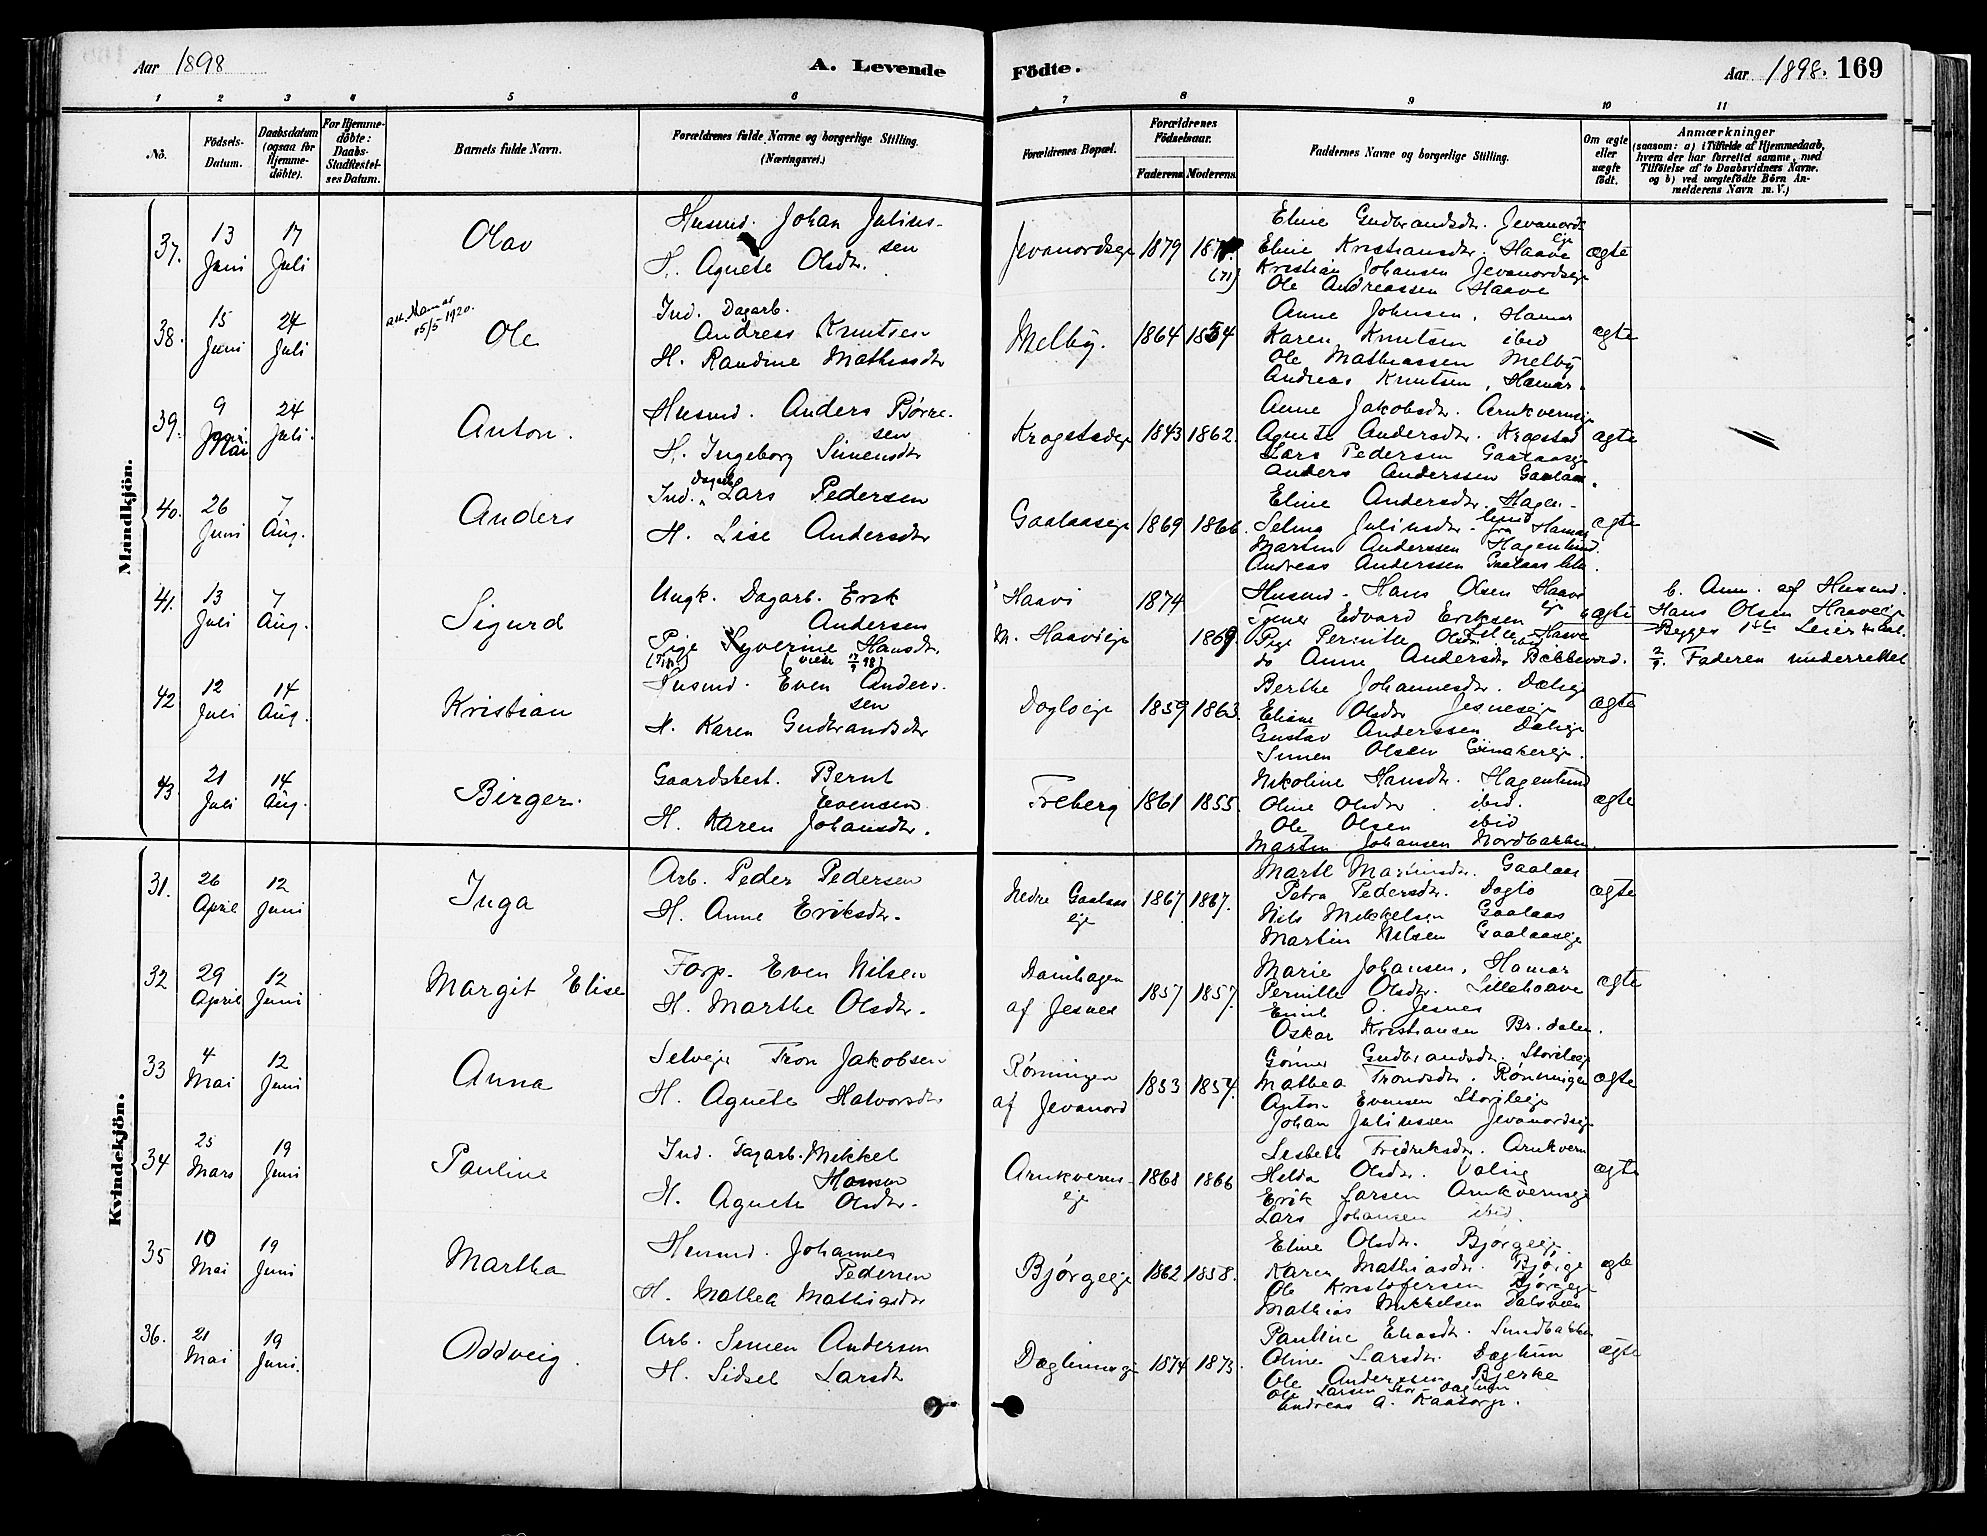 Aar 1898
A. Levende
Födte.
Aar 1898. 169
1 2 3 4 5 6 7 8 9 10 11
No.
Födsels-
Datum.
Daabsdatum
(ogsaa for
Hjemme-
döbte).
For Hjemme-
döbte:
Daabs-
Stadfestel-
ses Datum.
Barnets fulde Navn.
Forældrenes fulde Navne og borgerlige Stilling.
(Næringsvei.)
Forældrenes Bopæl.
Forældrenes
Födselsaar.
Faderens Moderens
Faddernes Navne og borgerlige Stilling.
Om ægte
eller
uægte
födt.
Anmærkninger
(saasom: a) i Tilfælde af Hjemmedaab,
hvem der har forrettet samme, med
Tilföielse af to Daabsvidners Navne.
og b) ved uægtefödte Börn An-
melderens Navn m. V.)
Mandkjön.
37. 13 Juni 17 Juli
Olav
Husmd. Johan Julius-
sen
H. Agnete Olsdtr.
Jevanordseje 1879 (71)
Eline Gudbrandsdtr. Jevanords
eje
Eline Kristiansdtr. Haave
Kristian Johansen Jevanordseje
Ole Andreassen Haave
ægte
38. 15 Juni 24 Juli
att. Hamar
15/5 1920.
Ole
Ind. Dagarb.
Andreas Knutsen
H. Randine Mathisdtr
Melby. 1864 1854
Anne Johnsen, Hamar
Karen Knutsen ibid
Ole Mathiassen Melby
Andreas Knutsen, Hamar.
ægte
39. 9 Mai 24 Juli.
Anton.
Husmd. Anders Børre-
sen
H. Ingeborg Simensdtr
Krogstadeje 1843 1862.
Anne Jakobsdtr. Arnkvernseje
Agnete Andersdtr. Krogstad
Lars Pedersen Gaalaaseje
Anders Anderssen Gaalaas.
ægte
40. 26 Juni 7 Aug.
Anders
Ind. Dagarb. Lars Pedersen
H. Lise Andersdtr
Gaalaaseje 1869 1866.
Eline Andersdtr. Hagen-
lund
Selma Juliusdtr. fra Hamar
Martin Anderssen Hagenlund.
Andreas Anderssen Gaalaas
ægte
41. 13 Juli 7 Aug.
Sigurd
Ungk. Dagarb. Erik
Andersen
Pige Syverine Hansdtr
Haave 1874
M. Haaveeje 1869
Husmd. Hans Olsen Haave
eje
Tjener Edvard Eriksen
Pige Pernille Olsdtr. Haave
do Anne Andersdtr
ægte
b. Anm. af Husmd.
Hans Olsen Haaveeje
Begges 1ste Leiermaal.
2/9. Faderen underrettet
42 12 Juli 14 Aug.
Kristian
Husmd. Even Anders-
sen
H. Karen Gudbrandsdtr
Dagloeje 1859 1863.
Berthe Johannesdtr. Daleeje
Eline Olsdtr Jesneseje
Gustav Anderssen Daleeje
Simen Olsen
ægte
43. 21 Juli 14 Aug.
Birger.
Gaardbest. Bernt
Evensen
H. Karen Johansdtr.
Freberg 1861 1855.
Nikoline Hansdtr. Hagenlund
Oline Olsdtr. ibid.
Ole Olsen ibid
Martin Johansen Nordbakken.
ægte
Kvindekjön.
31. 26 April 12 Juni
Inga
Arb. Peder Pedersen
H. Anne Eriksdtr.
Nedre Gaalaas
eje 1867 1867.
Marte Martinsdtr. Gaalaas
Petra Pedersdtr. Daglo
Nils Mikkelsen Gaalaas
Martin Nilsen Gaalaaseje
ægte
32 29 April 12 Juni
Margit Elise
Forp. Even Nilsen
H. Marthe Olsdtr.
Damhagen
af Jesnes 1857 1857.
Marie Johansen, Hamar
Pernille Olsdtr. Lillehaave
Emil O. Jesnes
Oskar Kristiansen Br. dalen.
ægte
33 4 Mai 12 Juni
Anna
Selveje Tron Jakobsen
H. Agnete Halvorsdtr
Rønningen
af Jevanord 1853 1854.
Gudbrandsdtr. Storileeje
Mathea Trondsdtr. Rønningen
Anton Evensen Storileeje
Johan Juliussen Jevanordseje
ægte
34 25 Mars 19 Juni
Pauline
Ind. Dagarb. Mikkel
Hansen
H. Agnete Olsdtr.
Arnkverns-
eje 1868 1866
Lisbeth Fredriksdtr. Arnkvern
Helda Olsdtr.
Erik Larsen Arnkvernseje
Lars Johansen ibid.
ægte
35 10 Mai 19 Juni
Martha
Husmd. Johannes
Pedersen
H. Mathea Mathiasdtr
Bjørgeeje 1862 1858.
Eline Olsdtr. Bjørgeeje.
Karen Mathiasdtr. Bjørge
Ole Kristofersen Bjørgeeje
Mathias Mikkelsen Dalsveen
ægte
36. 21 Mai 19 Juni.
Oddveig.
Arb. Simen Andersen
H. Sidsel Larsdtr
1874 1873.
Pauline Eliasdtr. Sundbakken
Oline Larsdtr. Dæglum
Ole Anderssen Bjerke
Ole Larsen Stor-Dæglum
Andreas A.
ægte